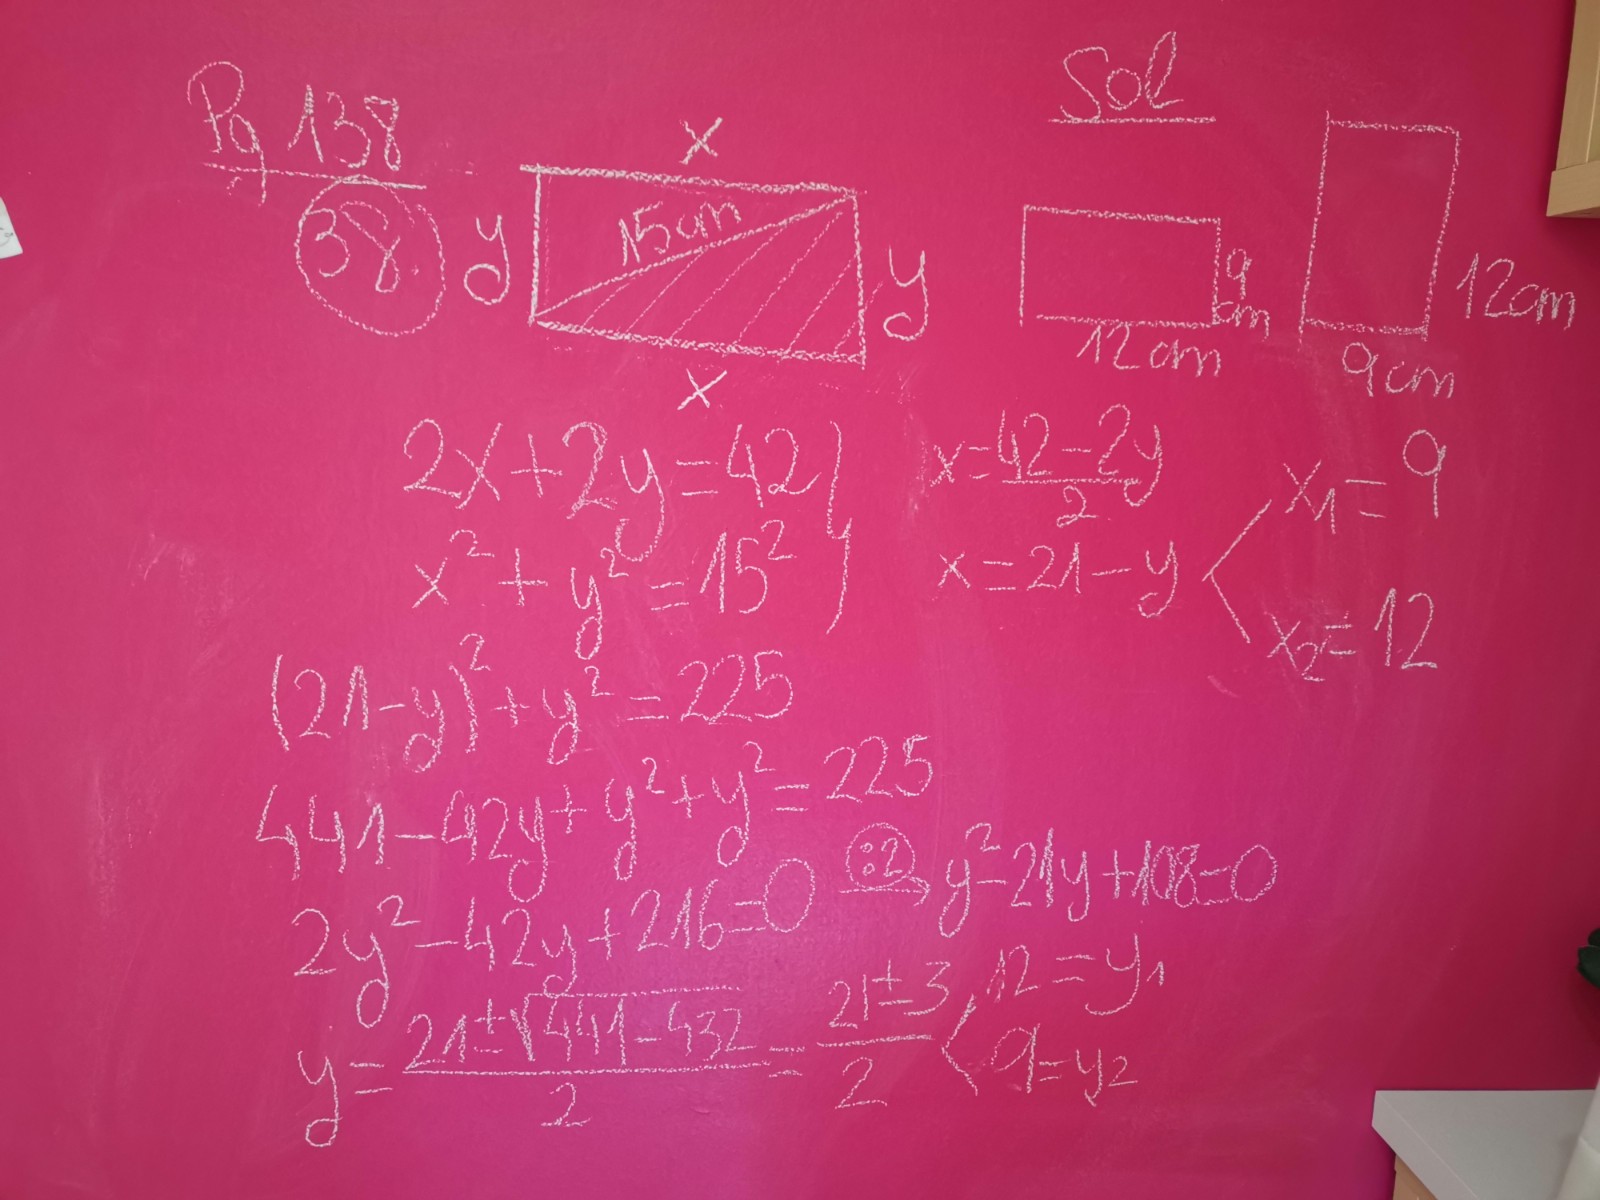 Pg 138
38.
x
y
15cm
y
x
Sol
9
cm
12cm
12cm
9cm
2x+2y=42}
x²+y²=15²
x=42-2y/2
x=21-y
x1=9
x2=12
(21-y)²+y²=225
441-42y+y²+y²=225
2y²-42y+216=0 :2 y²-21y+108=0
y=21±√441-432/2=21±3/2
12=y1
9=y2